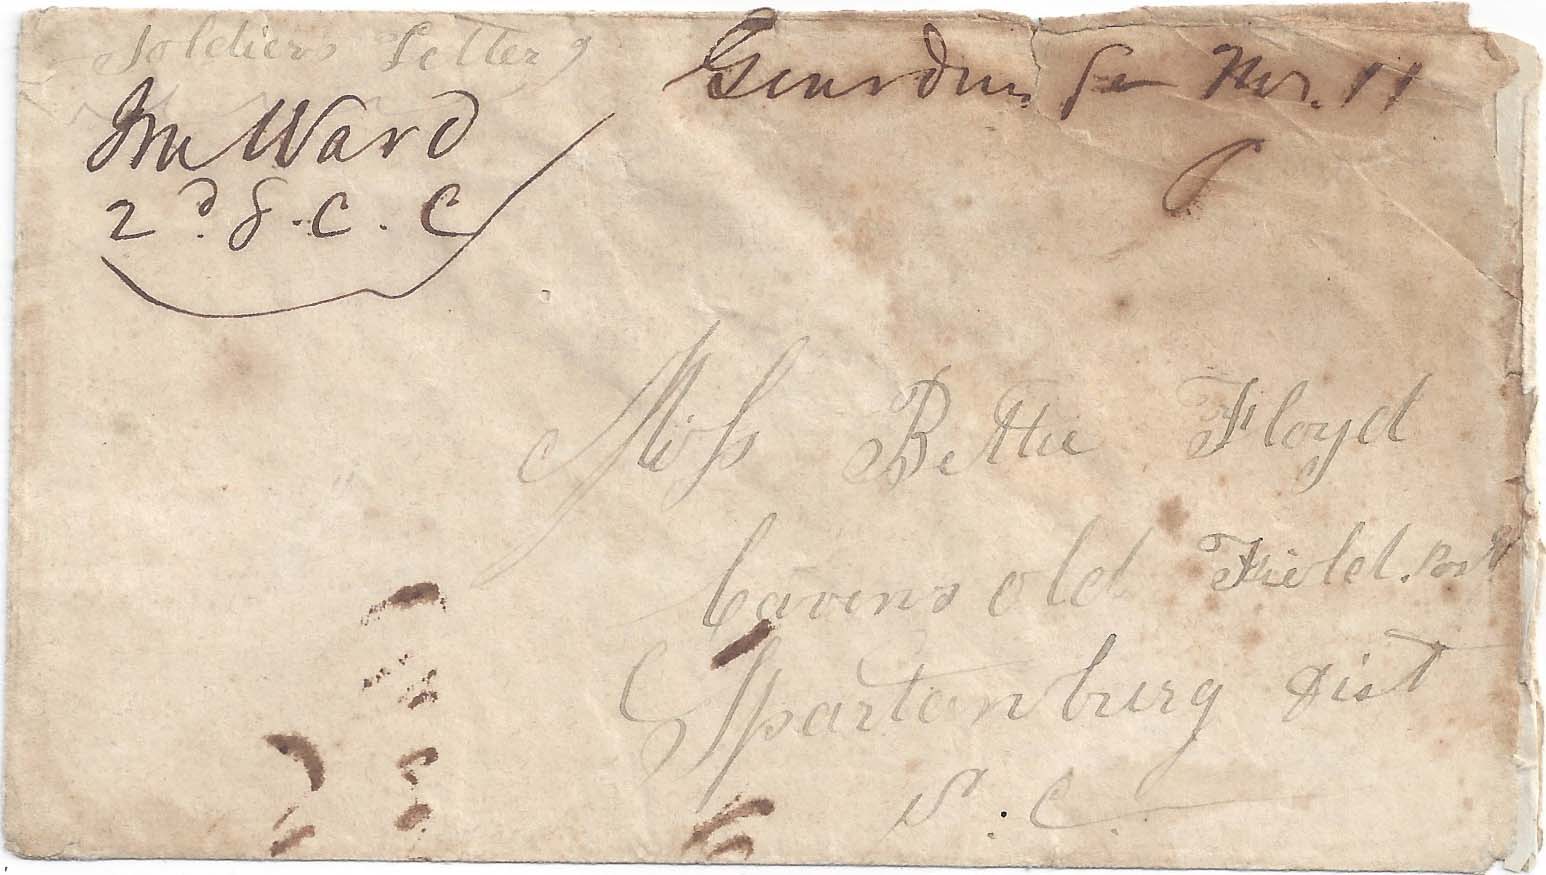 Soldiers Letter
Jno Ward
2d. S. C. C
Nov. 11
Miss Bettie Floyd
Cavens old Field. Post
Spartanburg Dist
S. C.